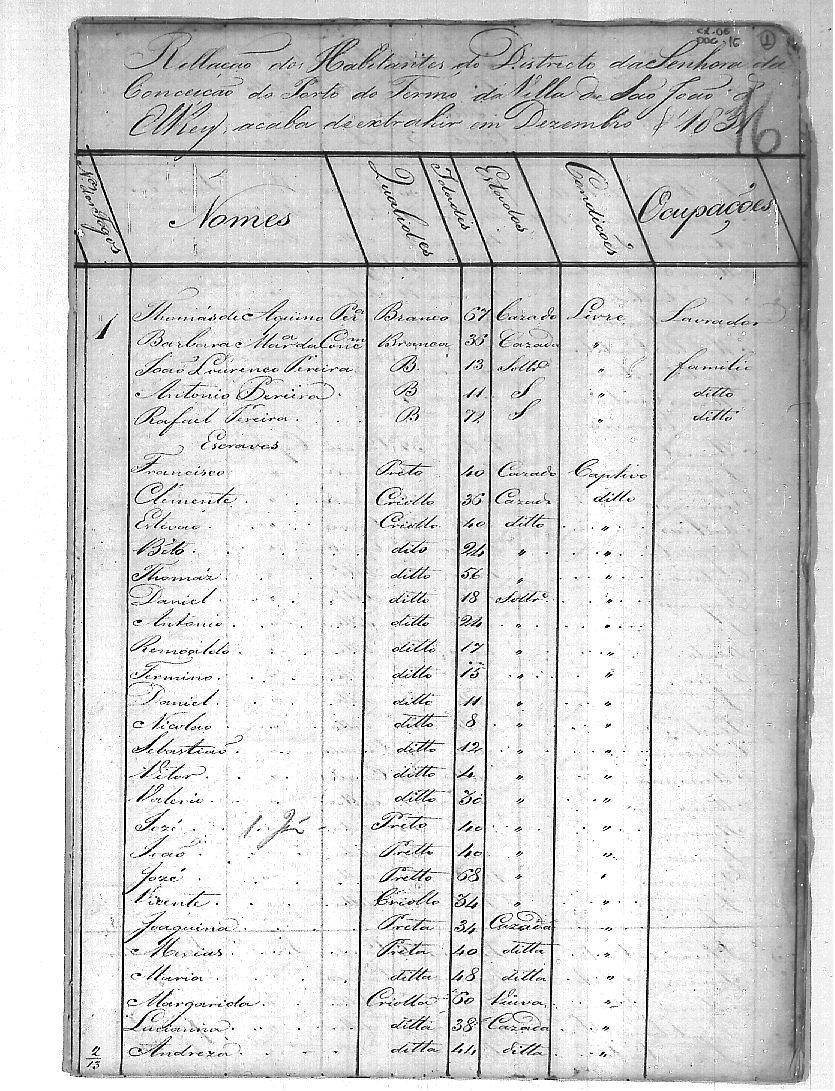 CX-06
DOC-16 1
Rellação dos Habitantes do Districto da Senhora da
Conceição do Porto do Termo da Villa de São João d
ElRey, acaba de extrahir em Dezembro d' 1831
16
Nº dos Fogos Nomes Qualid.es Idades Estados Condicões Ocupações
1 Thomás de Aquino Per.a Branco 67 Cazado Livre Lavrador
Barbara Mar.a da Conc Branca 36 Cazada "
João Lourenco Pereira B 13 Soltr.o " familia
Antonio Pereira B 11 S " ditto
Rafael Pereira B 72 S " ditto
Escravos
Francisco Preto 40 Cazado Captivo
Clemente Criollo 36 Cazado ditto
Estevao Criollo 40 ditto "
Bito dito 24 " "
Thomáz ditto 56 " "
Daniel ditto 18 Soltr.o "
Antonio ditto 24 " "
Remoaldo ditto 17 " "
Fermino ditto 15 " "
Daniel ditto 11 " "
Nicolao ditto 8 " "
Sebastiaõ ditto 12 " "
Vitor ditto 4 " "
Valerio ditto 30 " "
Jozé Preto 40 " "
João Pretto 40 " "
Jozé Pretto 68 " "
Vicente Criollo 34 " "
Joaquina Preta 34 Cazada "
Mecias Preta 40 ditta "
Maria ditta 48 ditta "
Margarida Criolla 60 Viuva "
Lucianna ditta 38 Cazada "
2/13 Andreza ditta 44 ditta "